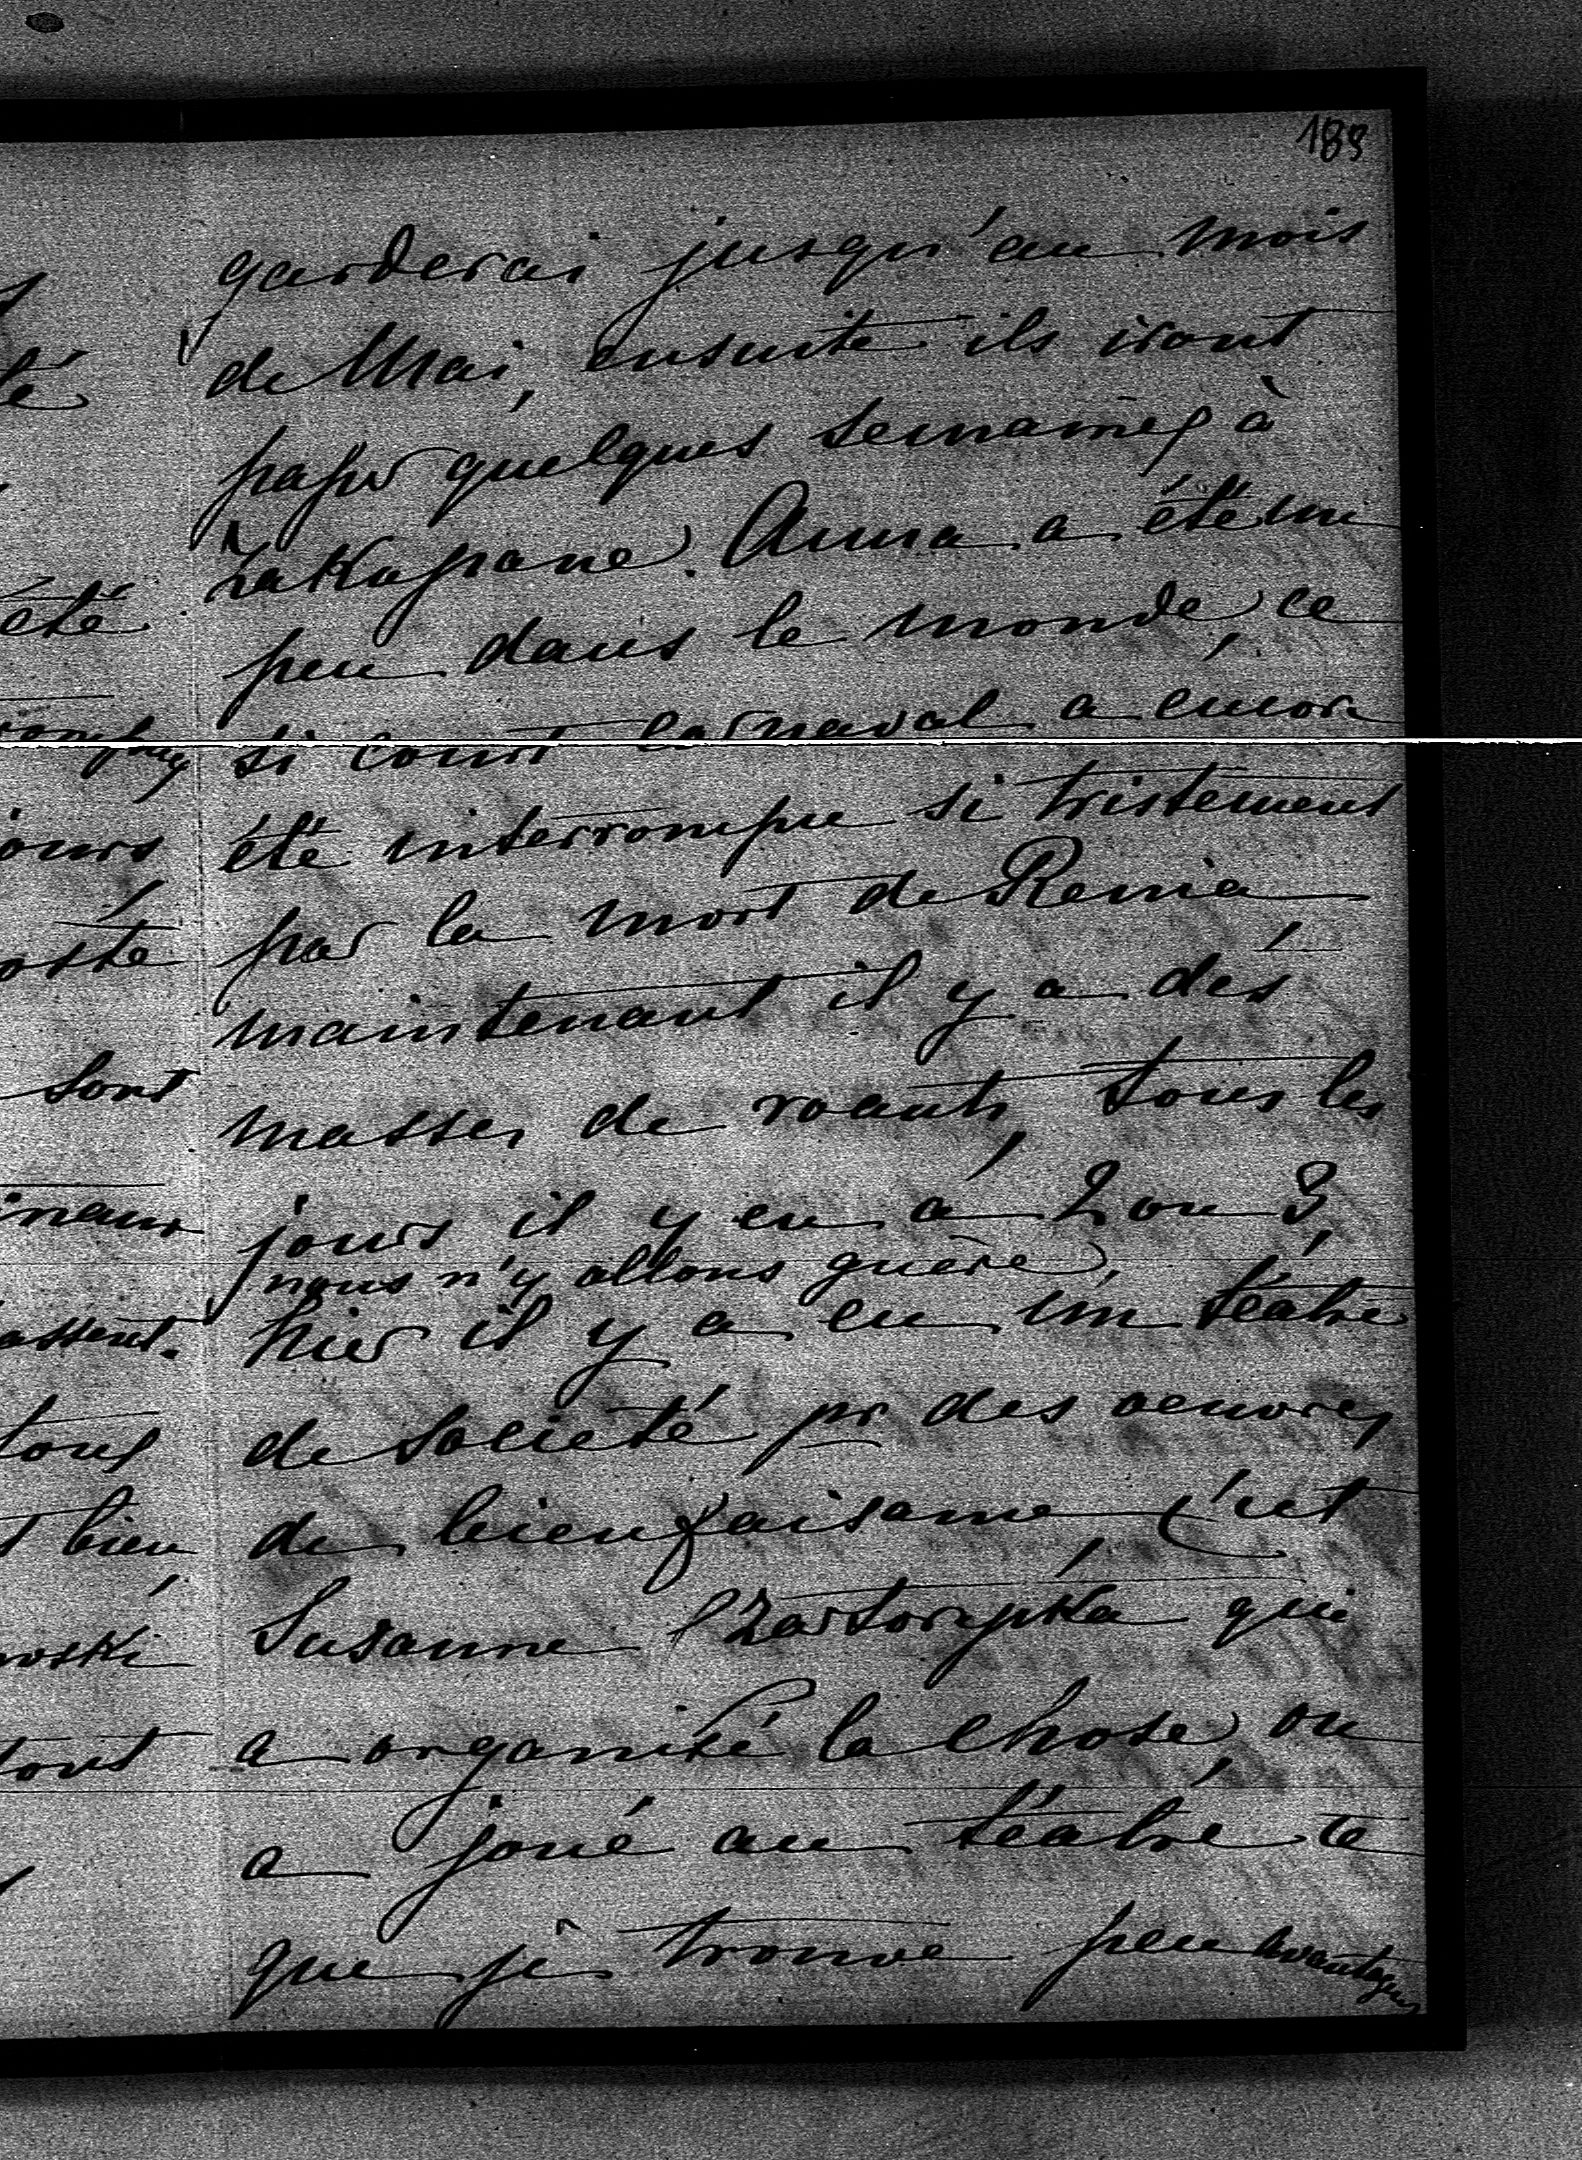 189
garderai jusqu'au mois
de Mai, ensuite ils iront
passer quelques semaines à
Zakopane. Anna a été un
peu dans le monde, ce
si court carnaval a encore
été interrompu si tristement
par la mort de Renia
maintenant il y a des
masses de roauts, tous les
jours il y en a 2 ou 3,
nous n'y allons guère,
hier il y a eu un téatre
de société pr des oeuvres
de bienfaisance, c'est
Susanne Czartoryska qui
a organisé la chose, on
a joué au téatre ce
que je trouve peu avantageux
té
été
jours
sont
tous
bien